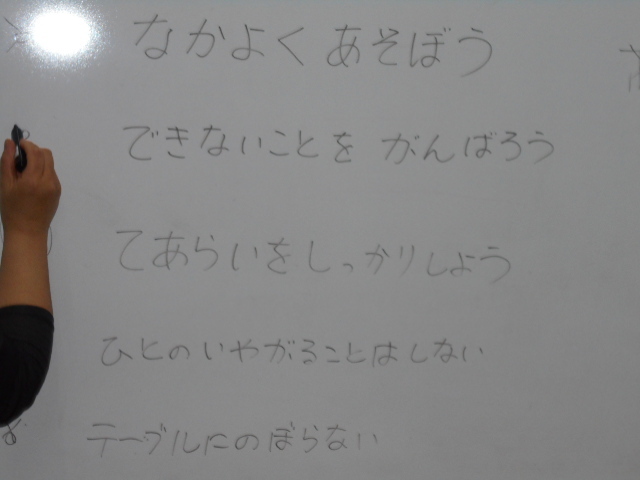 なかよく あそぼう
できないことを がんばろう
てあらいをしっかりしよう
ひとのいやがることはしない
テーブルにのぼらない